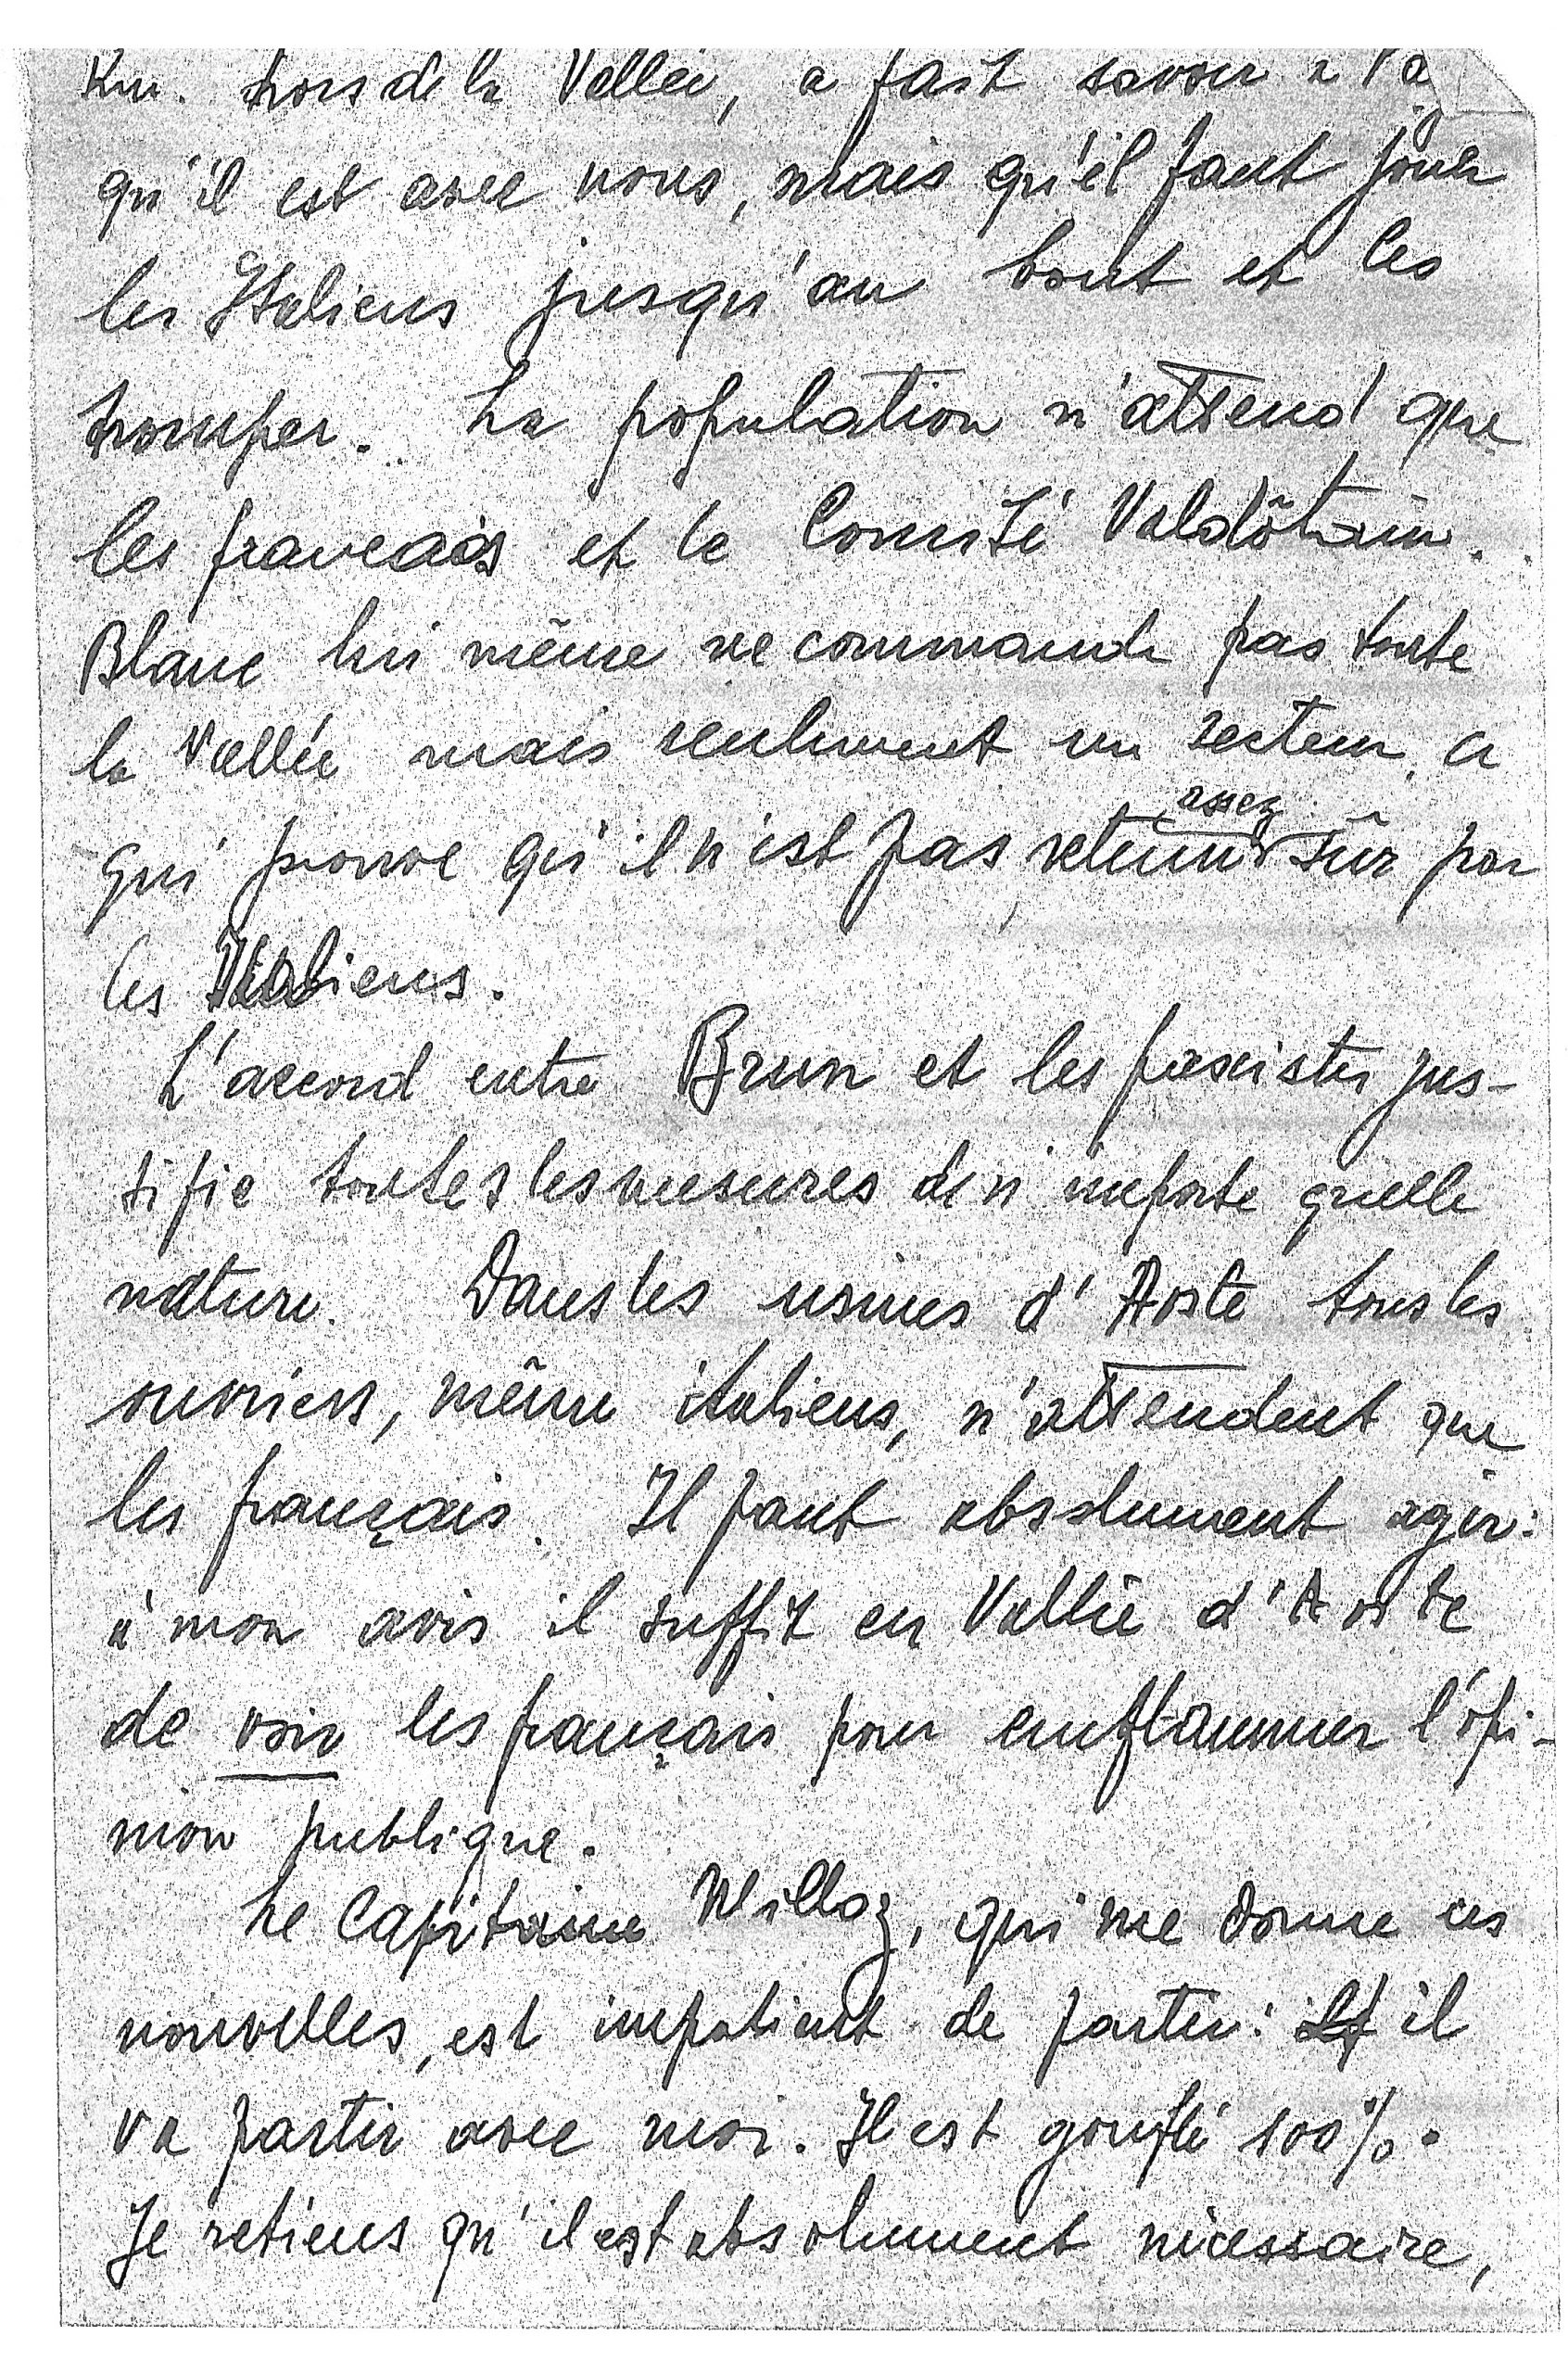 Km. hors de la Vallée, a fait savoir à
qu'il est avec nous, mais qu'il faut jouer
les Italiens jusqu'au bout et les
tromper. La population n'attend que
les français et le Comité Valdôtain.
Blanc lui même ne commande pas toute
la Vallée mais seulement un secteur, ce
qui prouve qu'il n'est pas retenu assez sûr par
les Italiens.
L'accord entre Brun et les fascistes jus-
tifie toutes les mesures de n'importe quelle
nature. Dans les usines d'Aoste tous les
ouvriers, même italiens, n'attendent que
les français. Il faut absolument agir:
à mon avis il suffit en Vallée d'Aoste
de voir les français pour enflammer l'opi-
nion publique.
Le Capitaine Willoz, qui me donne ces
nouvelles, est impatient de partir: il
va partir avec moi. Il est gonflé 100%.
Je retiens qu'il est absolument nécessaire,